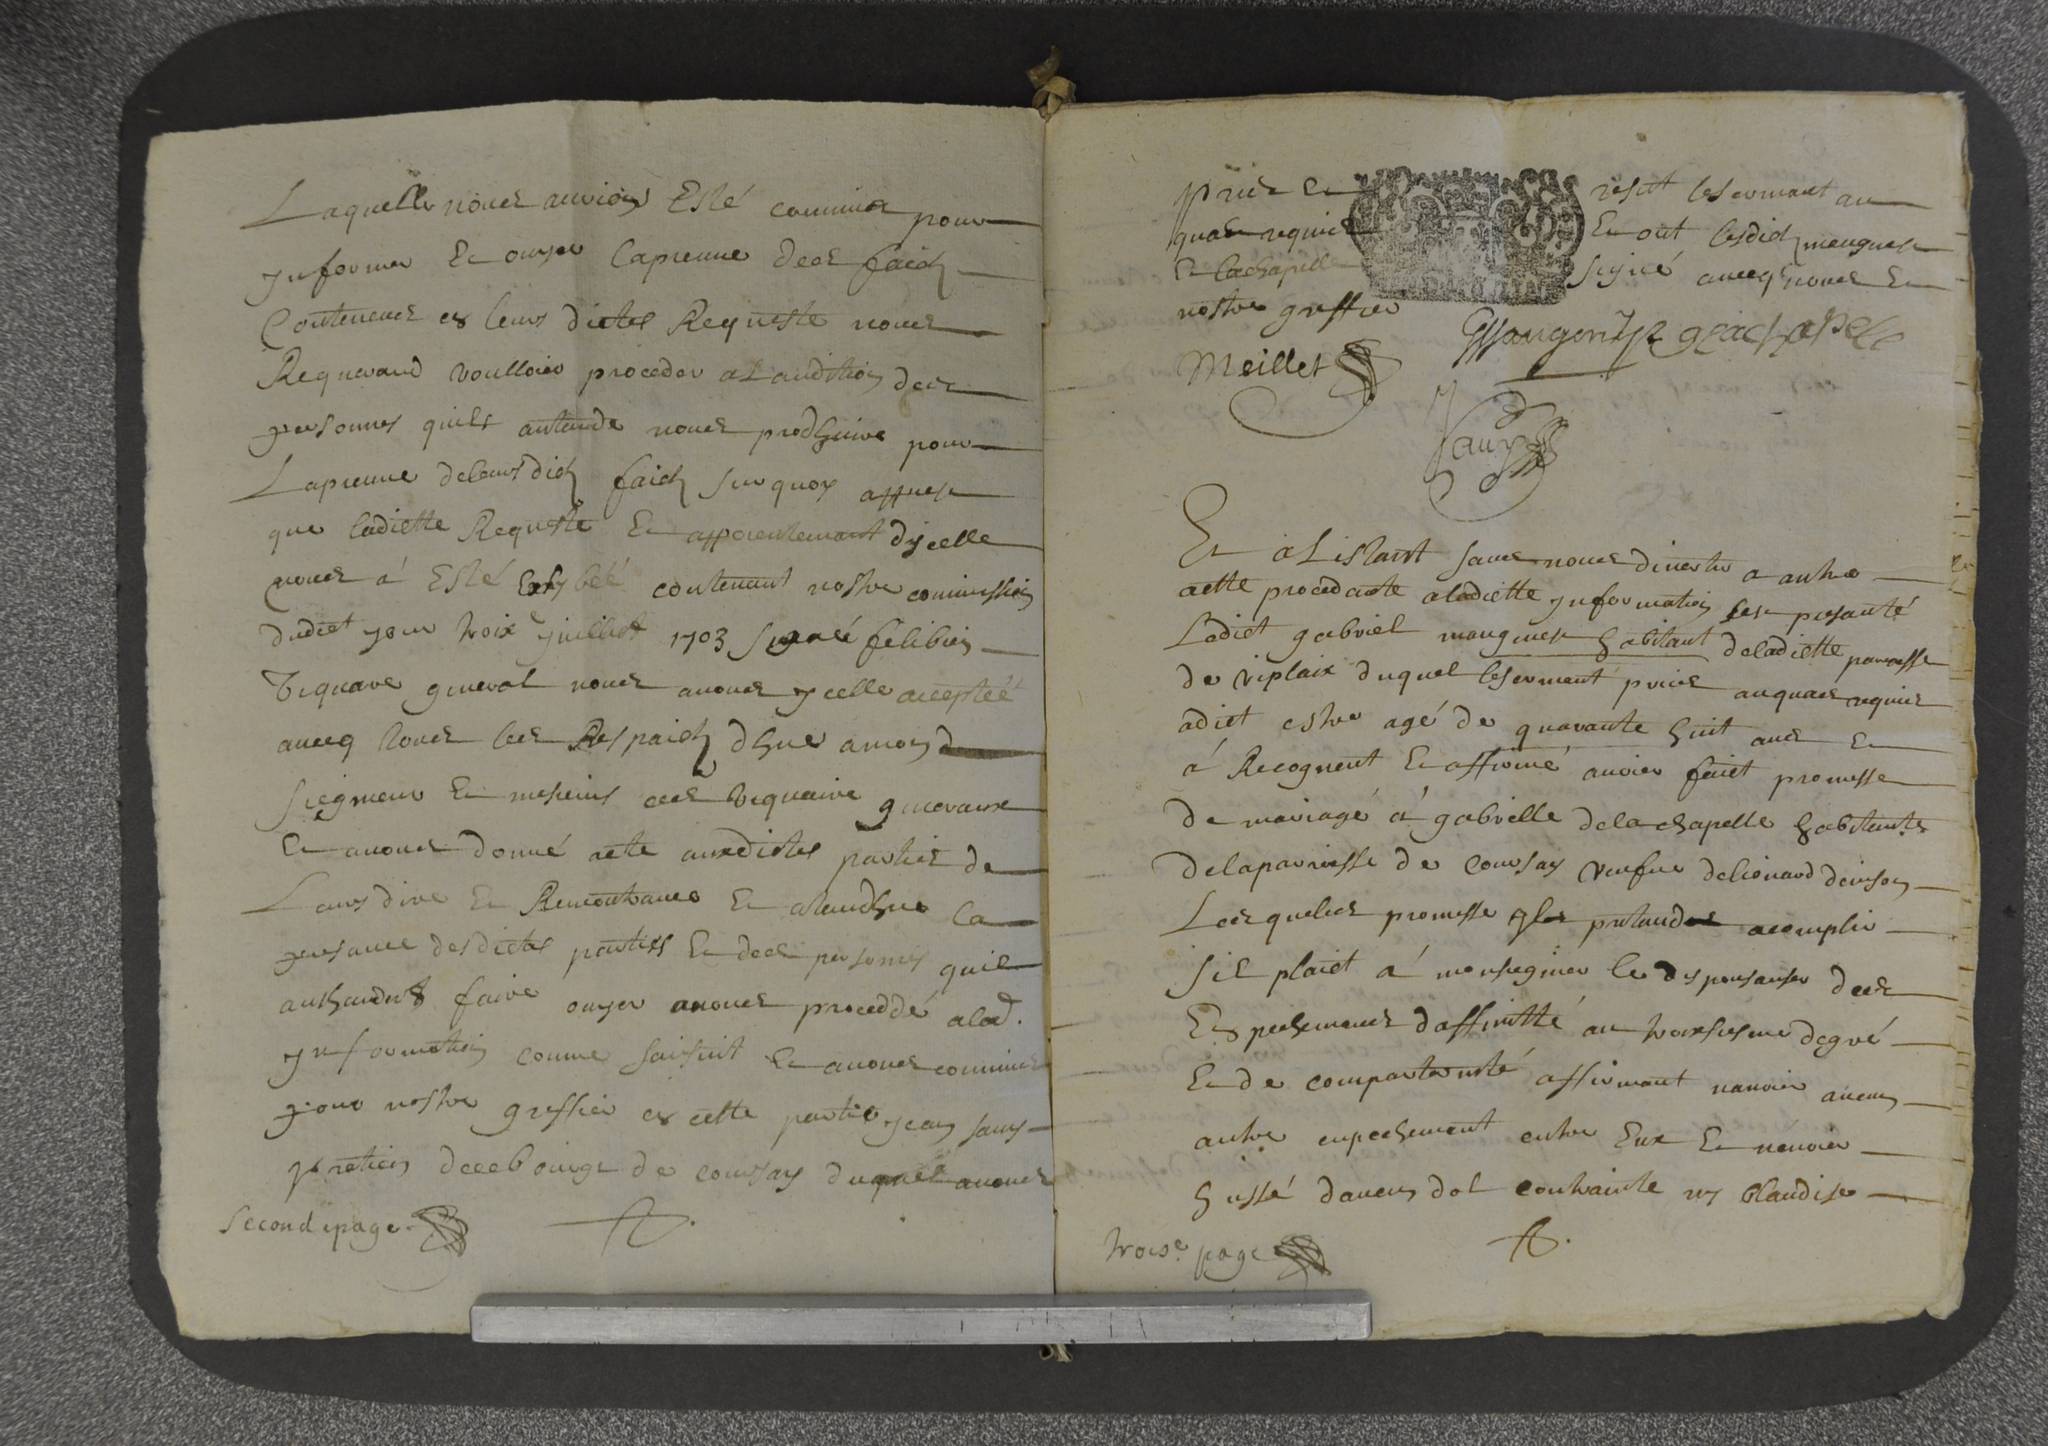 Laquelle nous aurions Esté commis pour
Informer Et ouyer la preuue des faictz
Contenues es leurs dictes Requeste nous
Requerand voulloier proceder a L'audition des
personnes quils antande nous prodhuire pour
La preuue de leurs dictz faictz sur quoy appres
que ladiette Requeste Et appoientemant d'jcelle
nous á Esté Exybée contenant nostre commission
dudict jour trois juillet 1703 signé felibien
viquaire general nous auons ycelle acceptée
auecq tous les Respaictz dhue a mond
seigneur Et messieurs ces viquaire generaux
Et auons donné acte auxdictes parties de
Leurs dire Et Remontrance Et atandhue la
presance desdictes parties Et des personnes quil
anthandent faire ouyer auons proceddé a lad.
Information comme sansuit Et auons commis
pour nostre greffier es cette partie jean sauy
praticien de ce bourgt de coursay duquel auons
second page
pries Et resut le sermant au
quas requies Et ont lesdictz maugnest
Et lachapelle signé auecq nous Et
nostre greffier
Meillet
Sauy
Et a L'istant sans nous diuertir a autre
acte procedante a ladiette Information sest presanté
Ledict gabriel maugnest habitant de ladiette paroisse
de viplaix duquel le serment pries auquas requies
a diet estre agé de quarante huit ans Et
á Recognent Et affirmé auoier faict promesse
de mariage á gabrielle de la chapelle habitante
de la paroisse de coursay veufue de lienard
Lesquelles promesse ylz pretandes acomplir
sil plaiet á monsegnieur les dispousanser des
Enpechemens d'affinitté au troisiesme degré
Et de compaternité affirmant nauoier aucun
autre enpechement entre Eux Et nauoier
hussé d'aucun dol contrainte ny blandise
trois.e page